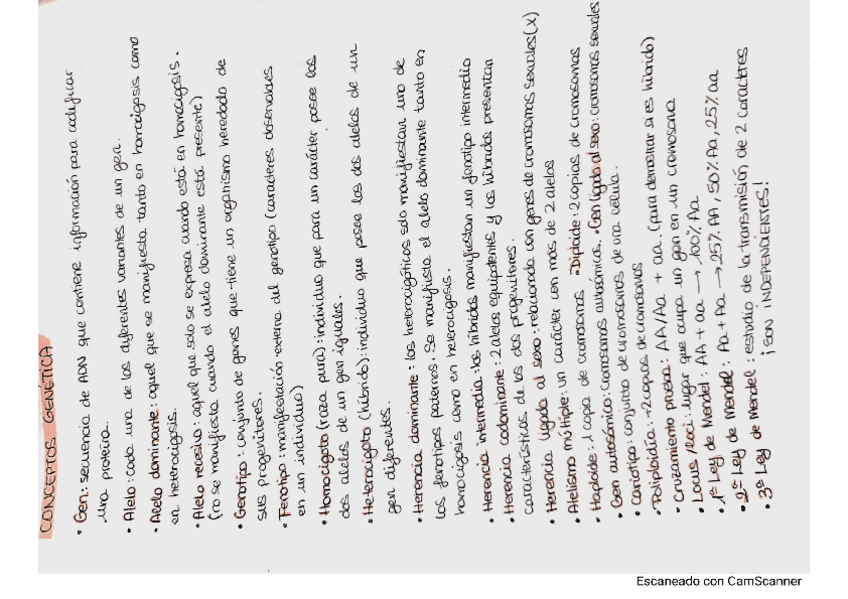 CONCEPTOS GENÉTICA
• Gen: secuencia de ADN que contiene información para codificar
una proteína.
• Alelo: cada una de las diferentes variantes de un gen.
• Alelo dominante: aquel que se manifiesta tanto en homocigosis como
en heterocigosis.
• Alelo recesivo: aquel que solo se expresa cuando está en homocigosis.
(no se manifiesta cuando el alelo dominante está presente)
• Genotipo: conjunto de genes que tiene un organismo heredado de
sus progenitores.
• Fenotipo: manifestación externa del genotipo (caracteres observables
en un individuo)
• Homocigoto (raza pura): individuo que para un carácter posee los
dos alelos de un gen iguales.
• Heterocigoto (híbrido): individuo que posee los dos alelos de un
gen diferentes.
• Herencia dominante: los heterocigóticos solo manifiestan uno de
los fenotipos paternos. Se manifiesta el alelo dominante tanto en
homocigosis como en heterocigosis.
• Herencia intermedia: los híbridos manifiestan un fenotipo intermedio
• Herencia codominante: 2 alelos equipotentes y los híbridos presentan
características de los dos progenitores.
• Herencia ligada al sexo: relacionada con genes de cromosomas sexuales (X)
• Alelismo múltiple: un carácter con más de 2 alelos
• Haploide: 1 copia de cromosomas • Diploide: 2 copias de cromosomas
• Gen autosómico: cromosomas autosómicos. • Gen ligado al sexo: cromosomas sexuales
• Cariotipo: conjunto de cromosomas de una célula.
• Poliploidía: +2 copias de cromosomas
• Cruzamiento prueba: AA/Aa + aa. (para demostrar si es híbrido)
• Locus/loci: lugar que ocupa un gen en un cromosoma
• 1ª Ley de Mendel: AA + aa → 100% Aa
• 2ª Ley de Mendel: Aa + Aa → 25% AA, 50% Aa, 25% aa
• 3ª Ley de Mendel: estudio de la transmisión de 2 caracteres
¡SON INDEPENDIENTES!
Escaneado con CamScanner